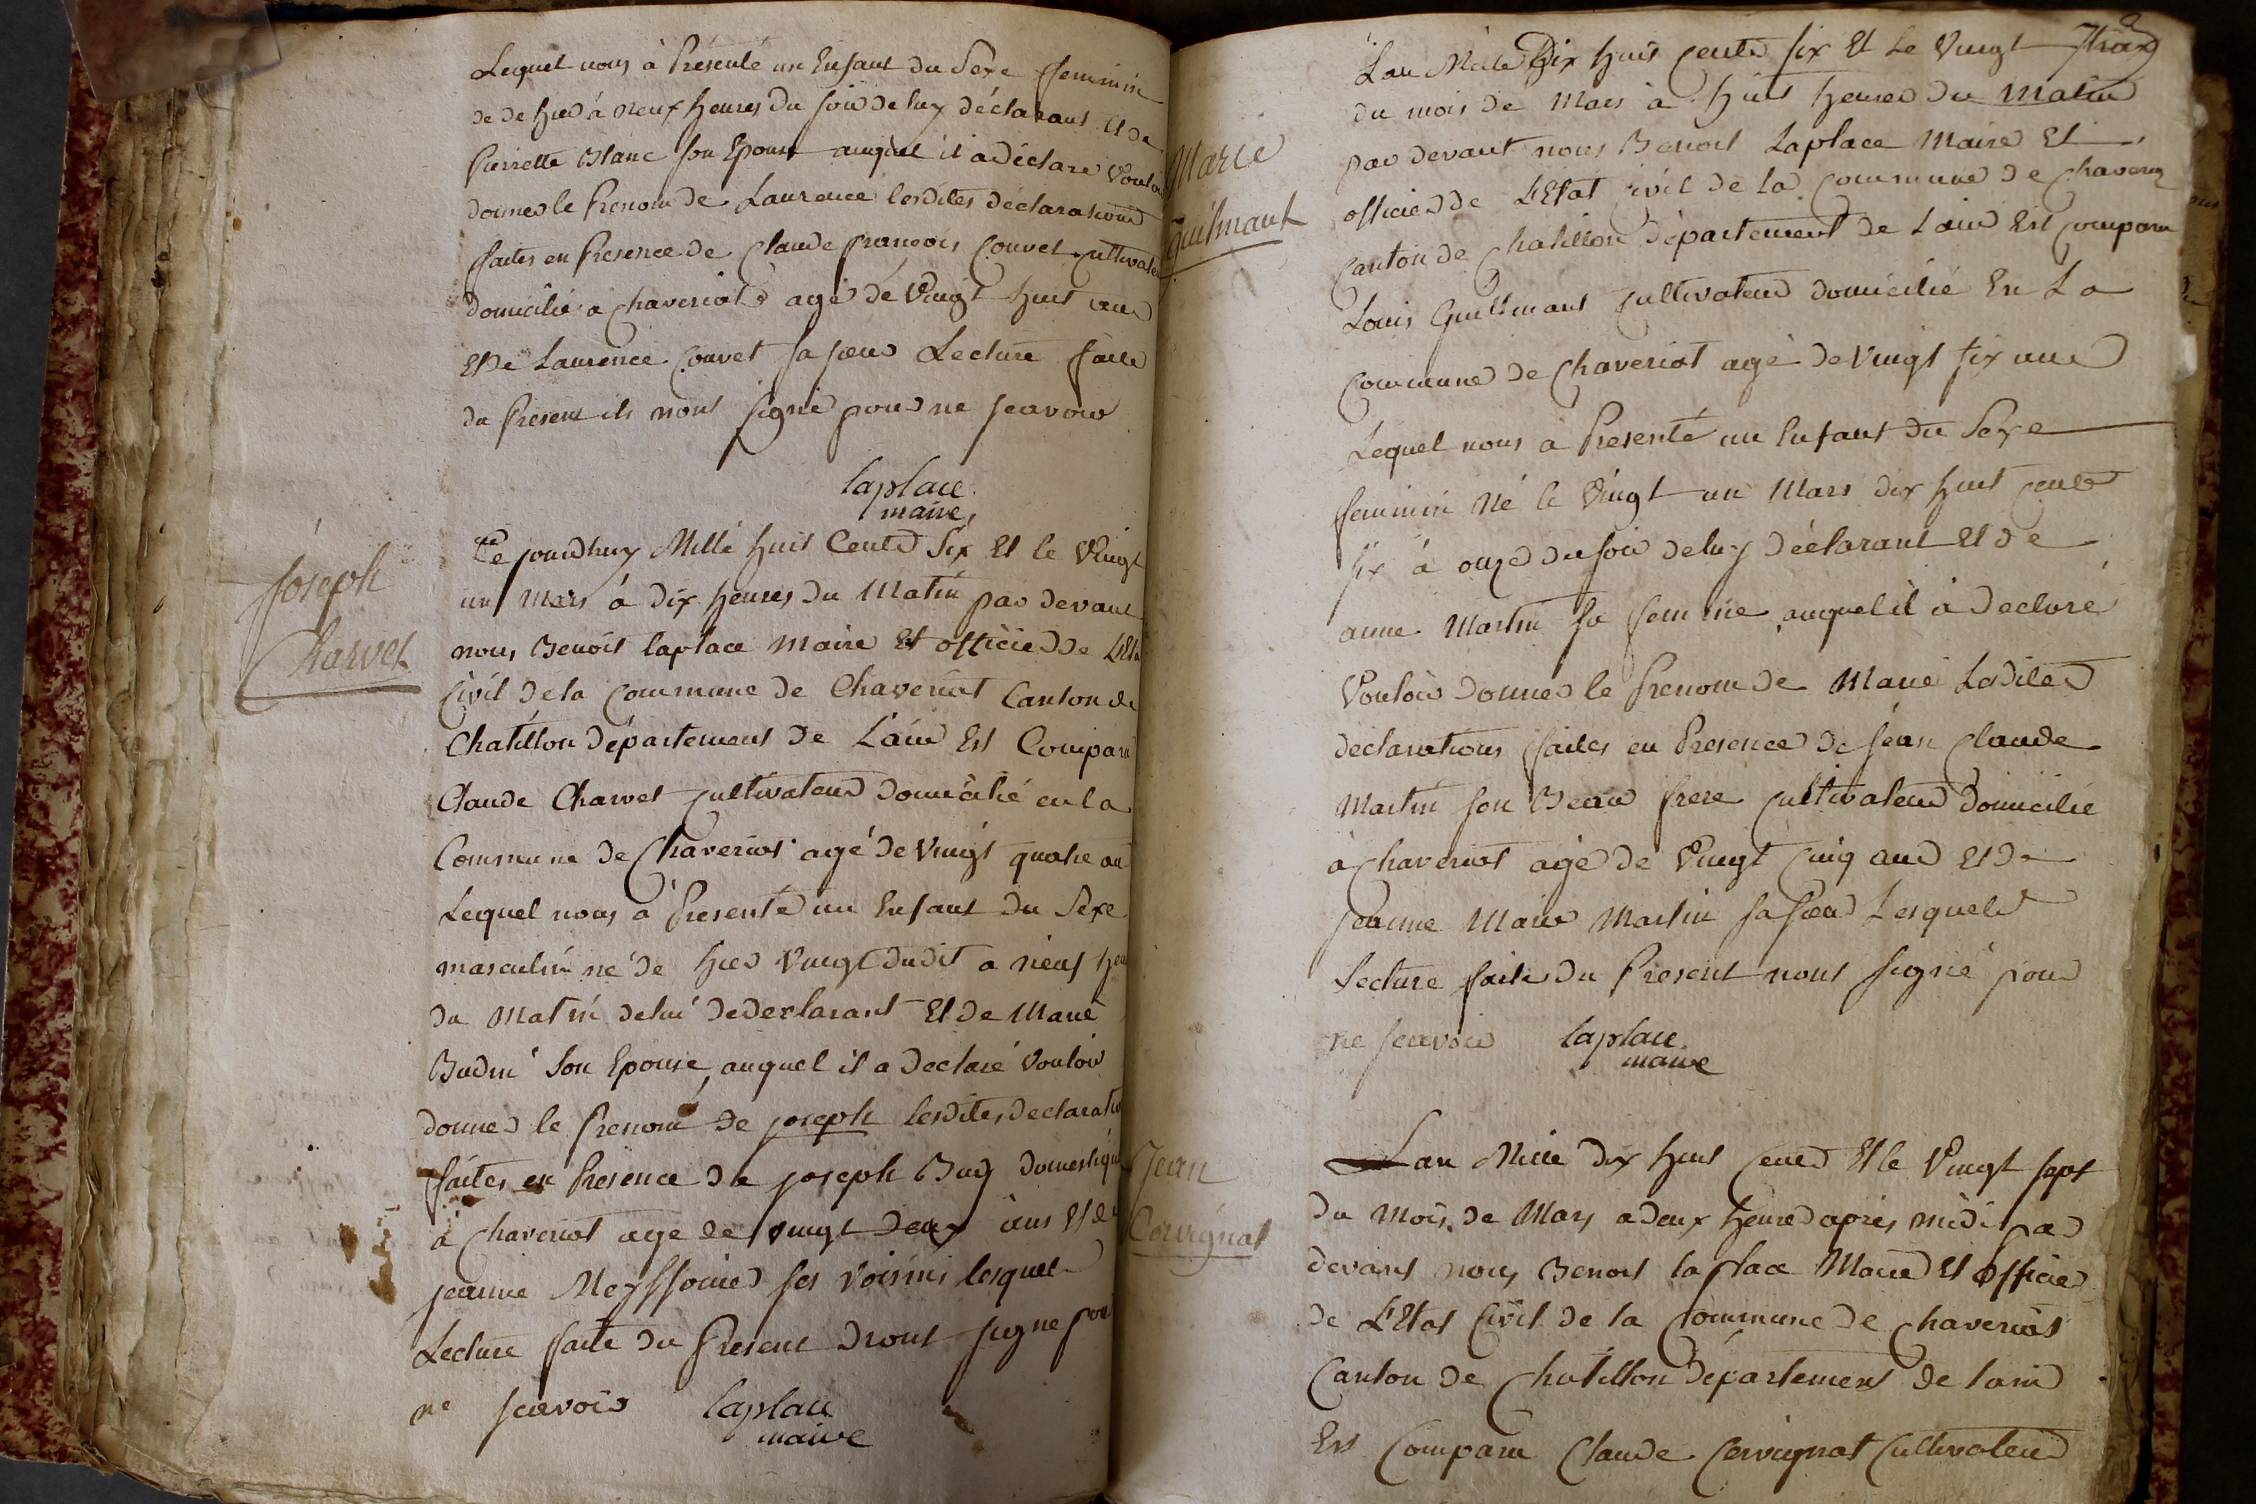 Lequel nous à Présenté un Enfant du Sexe feminin
de de hier à neuf heures du soir de luy déclarant Et de
Pierrette Blanc son Epouse auquel il à déclaré Vouloi
donner le Prenom de Laurence lesdites déclarations
faites en Presence de Claude François Couvet Cultivate
domicilié a Chaveriat agé de Vingt huit ans
Et De Laurence Couvet sa soeur Lecture faite
du Present ils nont signé pour ne scavoir
laplace
maire
Joseph
Charvet
Ce jourdhuy Mille huit Cents Six Et le Vingt
un Mars à dix heures du Matin par devant
nous Benoit laplace Maire Et officier de LEta
Civil de la Commune de Chaveriat Canton de
Chatillon département de Lain Est Comparu
Claude Charvet Cultivateur domicilié en la
Commune de Chaveriat agé de Vingt quatre an
Lequel nous à Presenté un Enfant du Sexe
masculin né de hier Vingt dudit a neuf heu
du Matin de lui dedexlarant Et de Marie
Budin Son Epouse auquel il a declaré Vouloir
donner le Prenom de joseph lesdites declaratio
faites en Presence de joseph Buy domestique
à Chaveriat agé de vingt deux ans Et de
jeanne Meyssonier ses voisins lesquels
Lecture faite du Present nont signé pour
ne scavoir laplace
maire
Marie
Guilmant
Lan Mille Dix huit Cents six Et le Vingt Trois
du mois de Mars à huit heures du Matin
par devant nous Benoit Laplace Maire Et
officier de LEtat Civil de la Commune de Chaveria
Canton de Chatillon département de Lain Est Comparu
Louis Guillmant Cultivateur domicilié En La
Commune de Chaveriat agé de Vingt six ans
Lequel nous à Presenté un Enfant du Sexe
feminin Né le Vingt un Mars dix huit Cents
six à onze du soir de luy déclarant Et de
anne Martin sa femme auquel il à declaré
Vouloir donner le Prenom de Marie Lesdites
déclarations faites en Presence de Jean Claude
Martin son Beau frere Cultivateur domicilié
à Chaveriat agé de Vingt Cinq ans Et de
jeanne Marie Martin sa soeur Lesquels
Lecture faite du Present nont signé pour
ne scavoir laplace
maire
Jean
Corvignat
Lan Mille dix huit Cents Et le Vingt sept
du Mois de Mars a deux heures apres midi par
devant nous Benoit laplace Maire Et officier
de LEtat Civil de la Commune de Chaveriat
Canton de Chatillon département de lain
Est Comparu Claude Cervignat Cultivateur